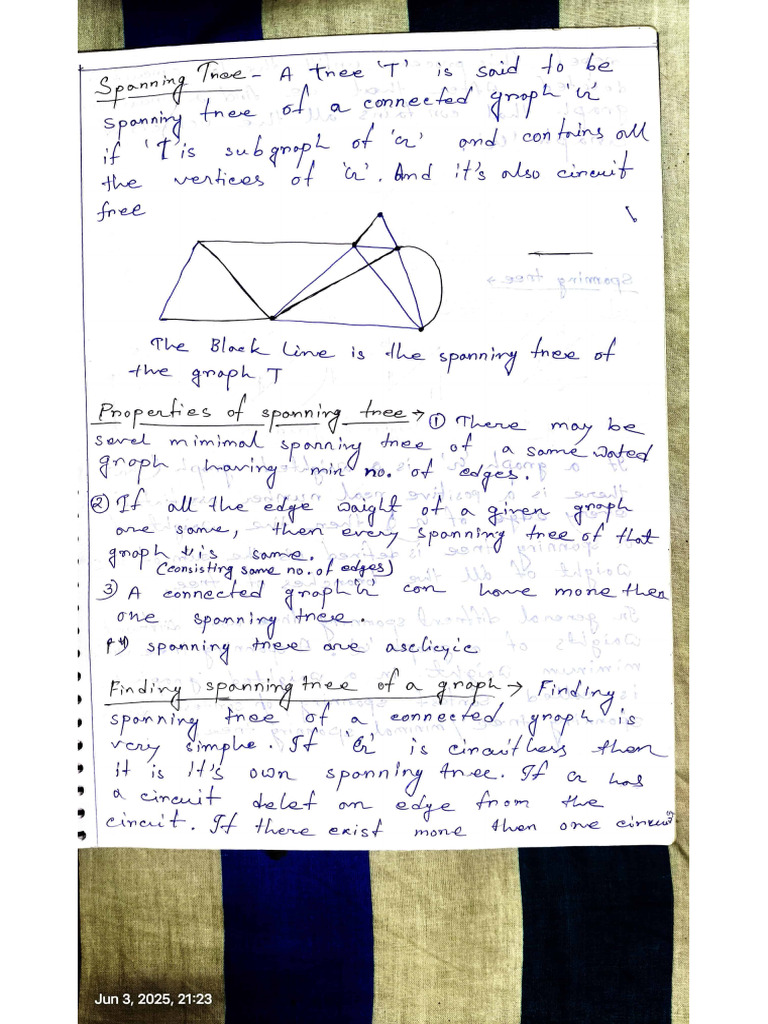 Spanning Tree - A tree 'T' is said to be
spanning tree of a connected graph 'G'
if 'T' is subgraph of 'G' and contains all
the vertices of 'G'. And it's also circuit
free
Spanning tree →
The Black Line is the spanning tree of
the graph T
Properties of spanning tree → ① There may be
sevel mimimal spanning tree of a same wated
graph having min no. of edges.
② If all the edge waight of a given graph
are same, then every spanning tree of that
graph is same.
(consisting same no. of edges)
3) A connected graph 'G' can have more then
one spanning tree.
4) spanning tree are
Finding spanning tree of a graph → Finding
spanning tree of a connected graph is
very simple. If 'G' is circuitless then
it is it's own spanning tree. If G has
a circuit delet an edge from the
circuit. If there exist more then one circuit
Jun 3, 2025, 21:23